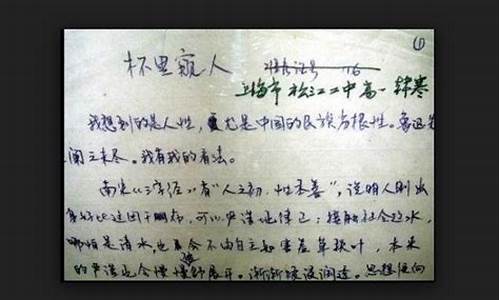 ①
杯里窥人 准考证号 116
上海市松江二中高一 韩寒
我想到的是人性，尤是中国的民族劣根性。鲁迅先
阐之未尽。我有我的看法。
南宋《三字经》有“人之初，性本善”，说明人刚出
好比这团干布，可以严谨地律己；接触社会这水，
哪怕是清水，也会不由自主如害羞草枝叶，本来
的严谨也会慢慢舒展开。渐渐被浸润透。思想便向